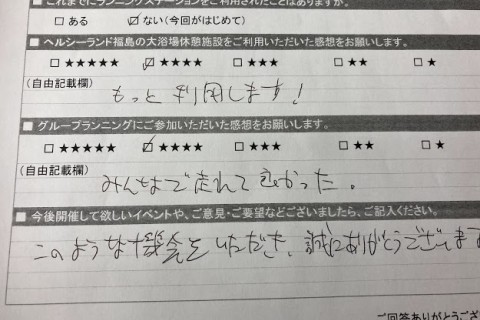 ■これまでにランニングステーションをご利用されたことはありますか。
□ ある ☑ ない(今回がはじめて)
■ヘルシーランド福島の大浴場休憩施設をご利用いただいた感想をお願いします。
□ ★★★★★ ☑ ★★★★ □ ★★★ □ ★★ □ ★
(自由記載欄)
もっと利用します!
■グループランニングにご参加いただいた感想をお願いします。
□ ★★★★★ ☑ ★★★★ □ ★★★ □ ★★ □ ★
(自由記載欄)
みんなで走れて良かった。
■今後開催して欲しいイベントや、ご意見・ご要望などございましたら、ご記入ください。
このような機会をいただき、誠にありがとうございます
ご回答ありがとうござ